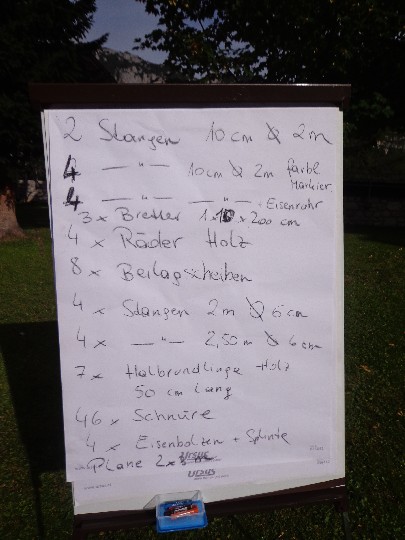 2 Stangen 10cm Ø 2m
4 —"— 10cm Ø 2m färbl.
Markier.
4 —"— —"— Eisenrohr
3 x Bretter 1 x 10 x 200 cm
4 x Räder Holz
8 x Beilagscheiben
4 x Stangen 2m Ø 6cm
4 x —"— 2,50m Ø 6cm
7 x Halbrundlinge Holz
50 cm Lang
46 x Schnüre
4 x Eisenbolzen + Splinte
Plane 2 x